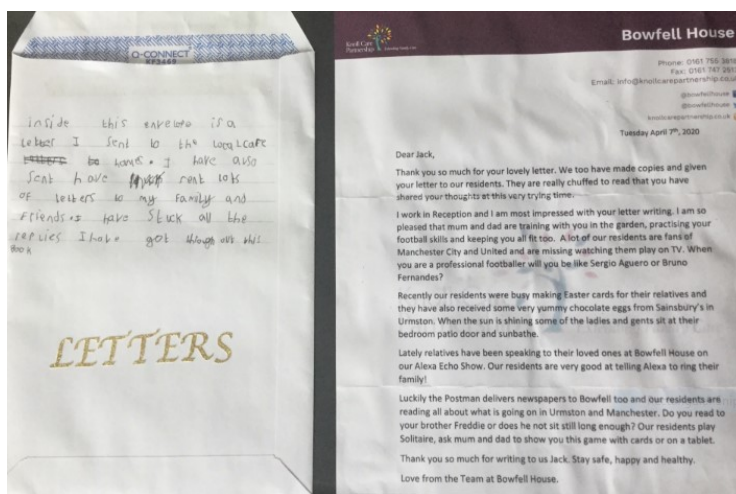 Q-CONNECT
KF3469
inside this envelope is a
letter I sent to the local care
home. I have also
sent have sent lots
of letters to my family and
friends. I have stuck all the
replies I have got this
book
LETTERS
Knoll Care
Partnership
Bowfell House
Phone: 0161 755
Fax: 0161 747
Email: info@knollcarepartnership.co.u
@bowfellhouse
@bowfellhouse
knollcarepartnership.co.uk
Tuesday April 7th, 2020
Dear Jack,
Thank you so much for your lovely letter. We too have made copies and given
your letter to our residents. They are really chuffed to read that you have
shared your thoughts at this very trying time.
I work in Reception and I am most impressed with your letter writing. I am so
pleased that mum and dad are training with you in the garden, practising your
football skills and keeping you all fit too. A lot of our residents are fans of
Manchester City and United and are missing watching them play on TV. When
you are a professional footballer will you be like Sergio Aguero or Bruno
Fernandes?
Recently our residents were busy making Easter cards for their relatives and
they have also received some very yummy chocolate eggs from Sainsbury's in
Urmston. When the sun is shining some of the ladies and gents sit at their
bedroom patio door and sunbathe.
Lately relatives have been speaking to their loved ones at Bowfell House on
our Alexa Echo Show. Our residents are very good at telling Alexa to ring their
family!
Luckily the Postman delivers newspapers to Bowfell too and our residents are
reading all about what is going on in Urmston and Manchester. Do you read to
your brother Freddie or does he not sit still long enough? Our residents play
Solitaire, ask mum and dad to show you this game with cards or on a tablet.
Thank you so much for writing to us Jack. Stay safe, happy and healthy.
Love from the Team at Bowfell House.